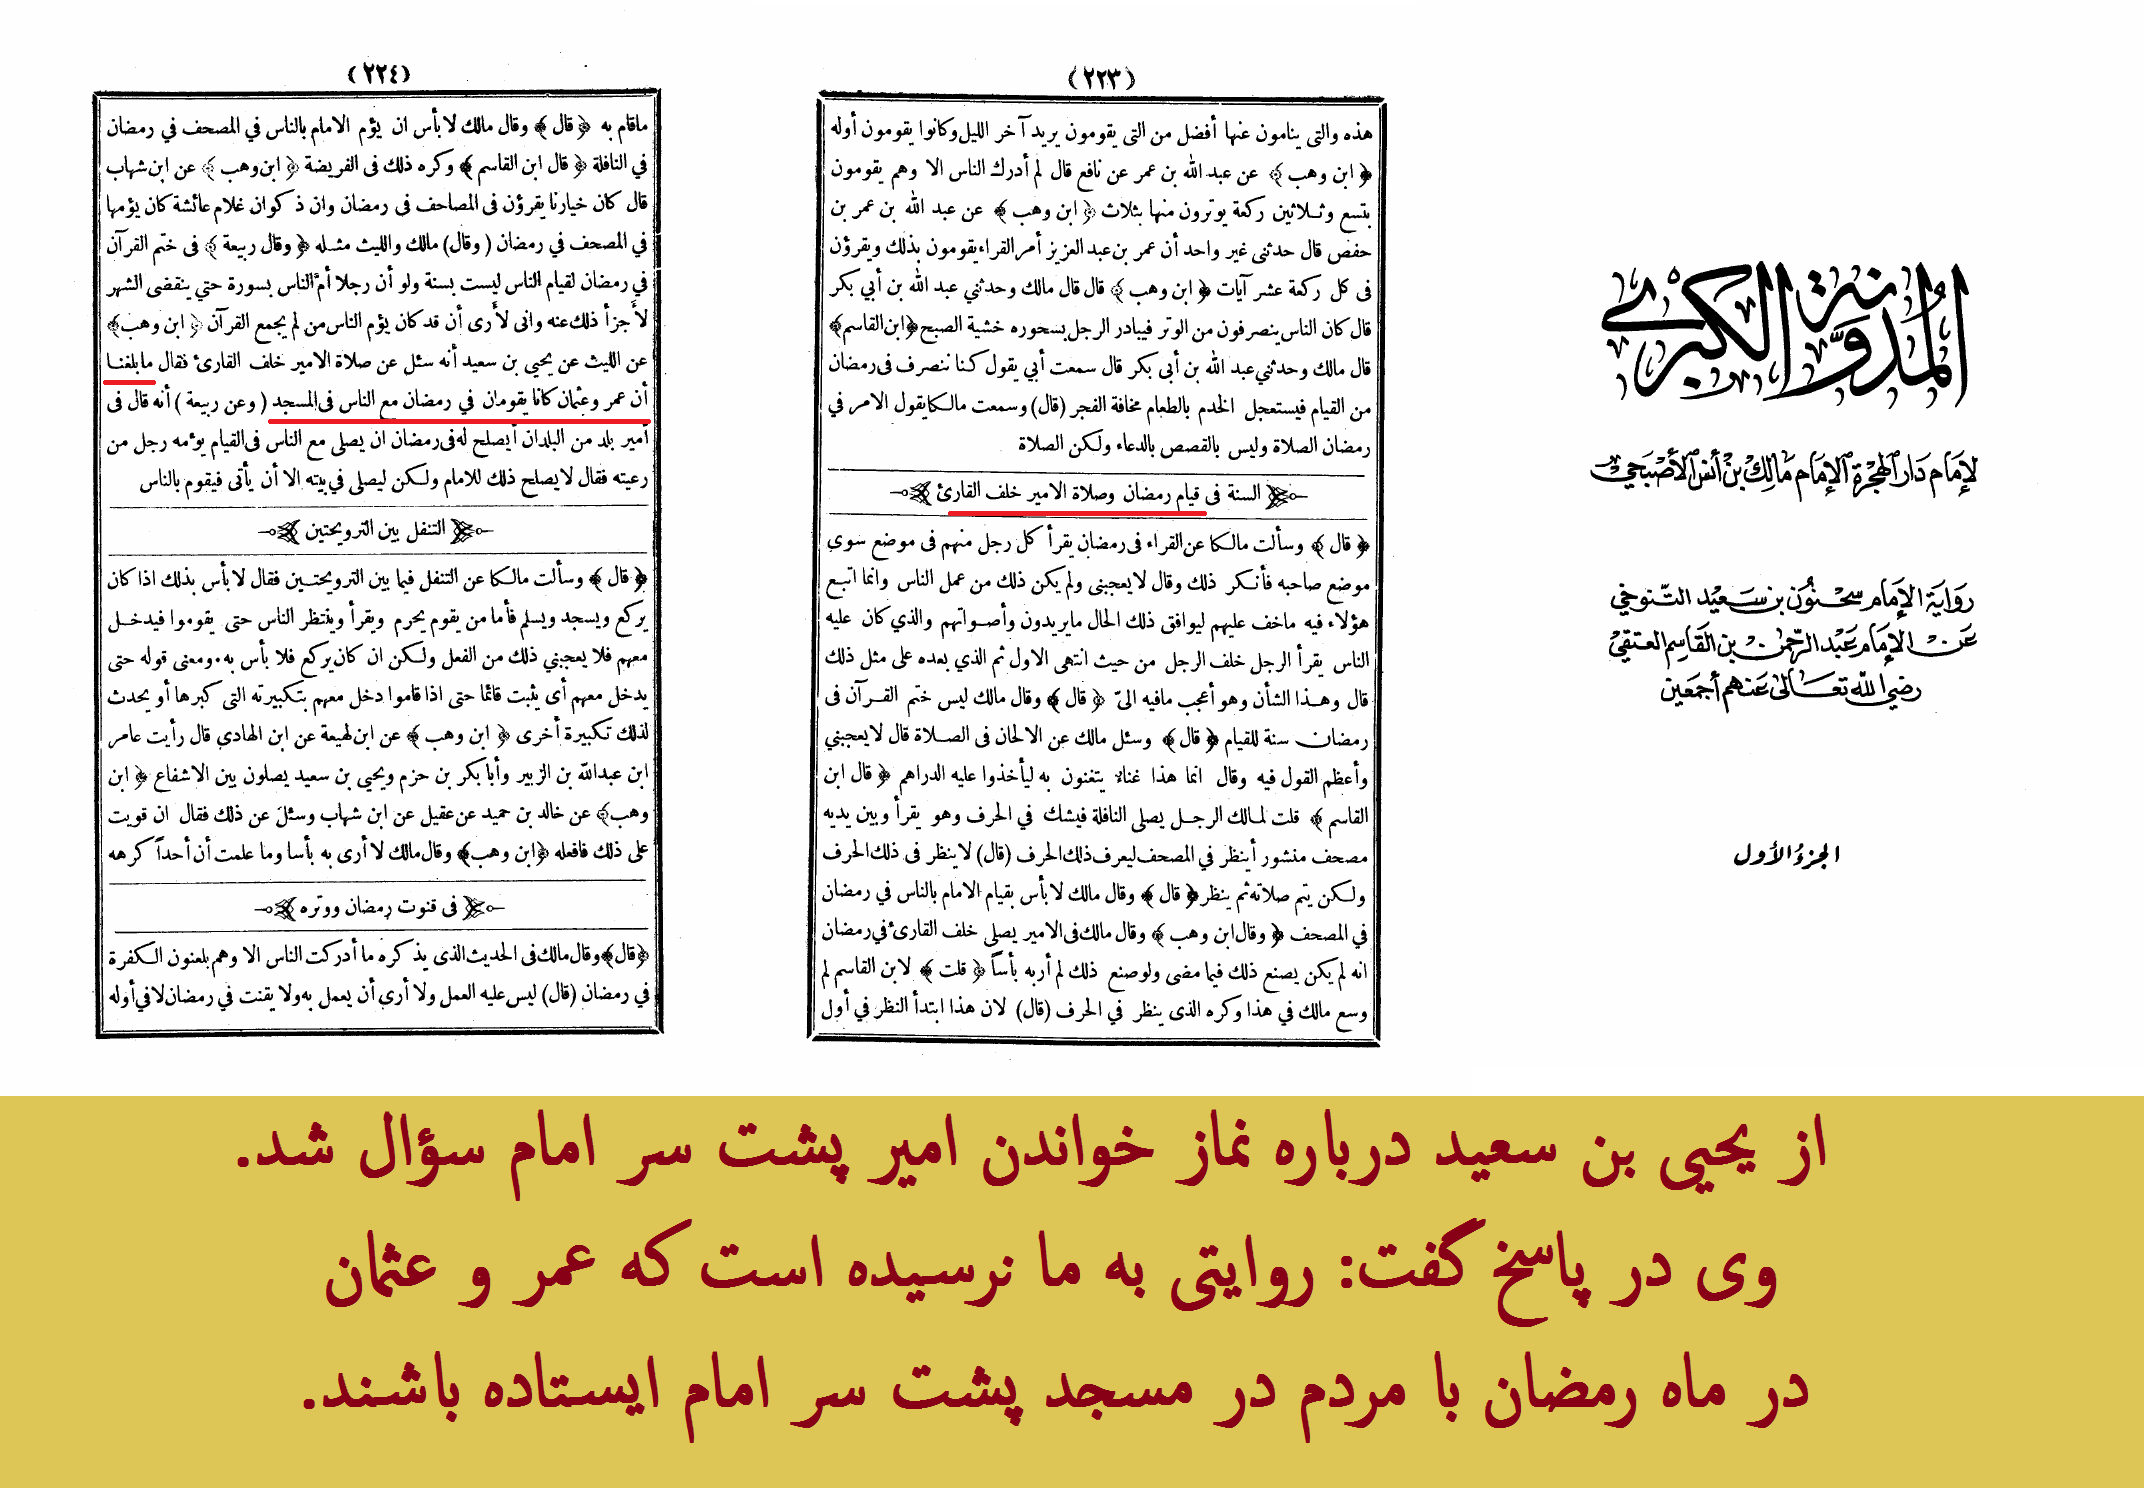 المدونة الكبرى
لإمام دار الهجرة الإمام مالك بن أنس الأصبحي
رواية الإمام سحنون بن سعيد التنوخي
عن الإمام عبد الرحمن بن القاسم العتقي
رضي الله تعالى عنهم أجمعين
الجزء الأول
(٢٢٣)
هذه والتى ينامون عنها أفضل من التى يقومون يريد آخر الليل وكانوا يقومون أوله
﴿ ابن وهب ﴾ عن عبد الله بن عمر عن نافع قال لم أدرك الناس الا وهم يقومون
بتسع وثلاثين ركعة يوترون منها بثلاث ﴿ ابن وهب ﴾ عن عبد الله بن عمر بن
حفص قال حدثنى غير واحد أن عمر بن عبد العزيز أمر القراء يقومون بذلك ويقرؤن
فى كل ركعة عشر آيات ﴿ ابن وهب ﴾ قال قال مالك وحدثني عبد الله بن أبي بكر
قال كان الناس ينصرفون من الوتر فيبادر الرجل بسحوره خشية الصبح ﴿ابن القاسم﴾
قال مالك وحدثني عبد الله بن أبى بكر قال سمعت أبي يقول كنا ننصرف فى رمضان
من القيام فيستعجل الخدم بالطعام مخافة الفجر (قال) وسمعت مالكا يقول الامر في
رمضان الصلاة وليس بالقصص بالدعاء ولكن الصلاة
السنة فى قيام رمضان وصلاة الامير خلف القارئ
﴿ قال ﴾ وسألت مالكا عن القراء فى رمضان يقرأ كل رجل منهم فى موضع سوي
موضع صاحبه فأنكر ذلك وقال لا يعجبنى ولم يكن ذلك من عمل الناس وانما اتبع
هؤلاء فيه ماخف عليهم ليوافق ذلك الحان مايريدون وأصواتهم والذي كان عليه
الناس يقرأ الرجل خلف الرجل من حيث انتهى الاول ثم الذي بعده على مثل ذلك
قال وهذا الشأن وهو أعجب مافيه الىّ ﴿ قال ﴾ وقال مالك ليس ختم القرآن فى
رمضان سنة للقيام ﴿ قال ﴾ وسئل مالك عن الالحان فى الصلاة قال لا يعجبني
وأعظم القول فيه وقال انما هذا غناء يتغنون به ليأخذوا عليه الدراهم ﴿ قال ابن
القاسم ﴾ قلت لمالك الرجل يصلى النافلة فيشك في الحرف وهو يقرأ وبين يديه
مصحف منشور أينظر في المصحف ليعرف ذلك الحرف (قال) لا ينظر فى ذلك الحرف
ولكن يتم صلاته ثم ينظر ﴿ قال ﴾ وقال مالك لا بأس بقيام الامام بالناس في رمضان
في المصحف ﴿ وقال ابن وهب ﴾ وقال مالك فى الامير يصلى خلف القارئ في رمضان
انه لم يكن يصنع ذلك فيما مضى ولو صنع ذلك لم أر به بأساً ﴿ قلت ﴾ لابن القاسم لم
وسع مالك في هذا وكره الذى ينظر في الحرف (قال) لان هذا ابتدأ النظر في أول
(٢٢٤)
ماقام به ﴿ قال ﴾ وقال مالك لا بأس ان يؤم الامام بالناس في المصحف في رمضان
في النافلة ﴿ قال ابن القاسم ﴾ وكره ذلك فى الفريضة ﴿ ابن وهب ﴾ عن ابن شهاب
قال كان خيارنا يقرؤن فى المصاحف فى رمضان وان ذكوان غلام عائشة كان يؤمها
في المصحف في رمضان (وقال) مالك والليث مثله ﴿ وقال ربيعة ﴾ فى ختم القرآن
في رمضان لقيام الناس ليست بسنة ولو أن رجلا أم الناس بسورة حتي ينقضى الشهر
لأجزأ ذلك عنه وانى لأرى أن قد كان يؤم الناس من لم يجمع القرآن ﴿ ابن وهب﴾
عن الليث عن يحيي بن سعيد أنه سئل عن صلاة الامير خلف القارئ فقال مابلغنا
أن عمر وعثمان كانا يقومان في رمضان مع الناس فى المسجد (وعن ربيعة) أنه قال فى
أمير بلد من البلدان أيصلح له فى رمضان ان يصلى مع الناس فى القيام يؤمه رجل من
رعيته فقال لا يصلح ذلك للامام ولكن ليصلى في بيته الا أن يأتى فيقوم بالناس
التنفل بين الترويحتين
﴿ قال ﴾ وسألت مالكا عن التنفل فيما بين الترويحتين فقال لا بأس بذلك اذا كان
يركع ويسجد ويسلم فأما من يقوم يحرم ويقرأ وينتظر الناس حتى يقوموا فيدخل
معهم فلا يعجبني ذلك من الفعل ولكن ان كان يركع فلا بأس به . ومعنى قوله حتى
يدخل معهم أى يثبت قائما حتى اذا قاموا دخل معهم بتكبيرته التى كبرها أو يحدث
لذلك تكبيرة أخرى ﴿ ابن وهب ﴾ عن ابن لهيعة عن ابن الهادي قال رأيت عامر
ابن عبد الله بن الزبير وأبا بكر بن حزم ويحيي بن سعيد يصلون بين الاشفاع ﴿ ابن
وهب﴾ عن خالد بن حميد عن عقيل عن ابن شهاب وسئل عن ذلك فقال ان قويت
على ذلك فافعله ﴿ابن وهب﴾ وقال مالك لا أرى به بأسا وما علمت أن أحداً كرهه
فى قنوت رمضان ووتره
﴿قال﴾ وقال مالك فى الحديث الذى يذكره ما أدركت الناس الا وهم يلعنون الكفرة
في رمضان (قال) ليس عليه العمل ولا أرى أن يعمل به ولا يقنت في رمضان لا في أوله
از یحیی بن سعید درباره نماز خواندن امیر پشت سر امام سؤال شد.
وی در پاسخ گفت: روایتی به ما نرسیده است که عمر و عثمان
در ماه رمضان با مردم در مسجد پشت سر امام ایستاده باشند.